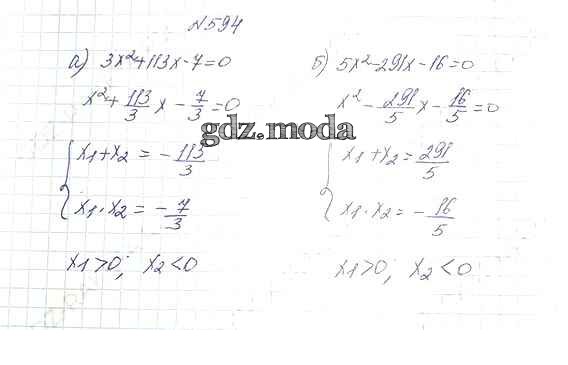 №594
а) 3x²+113x-7=0
x² + 113/3 x - 7/3 = 0
x1+x2 = - 113/3
x1·x2 = - 7/3
x1>0; x2<0
б) 5x²-291x-16=0
x² - 291/5 x - 16/5 = 0
x1+x2 = 291/5
x1·x2 = - 16/5
x1>0; x2<0
gdz.moda